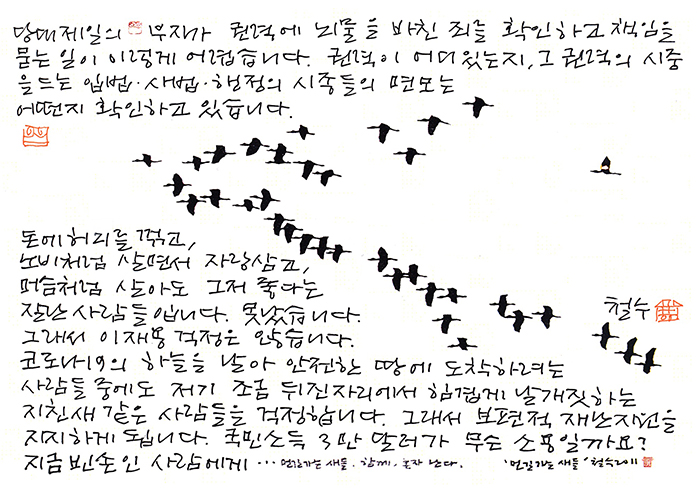 당대제일의 부자가 권력에 뇌물을 바친 죄를 확인하고 책임을
묻는 일이 이렇게 어렵습니다. 권력이 어디있는지, 그 권력의 시중
을드는 입법·사법·행정의 시종들의 면모는
어떤지 확인하고 있습니다.
돈에허리를 꺾고,
노비처럼 살면서 자랑삼고,
머슴처럼 살아도 그저 좋다는
잘난 사람들입니다. 못났습니다.
그래서 이재용 걱정은 않습니다.
철수
코로나19의 하늘을 날아 안전한 땅에 도착하려는
사람들 중에도 저기 조금 뒤진자리에서 힘겹게 날개짓하는
지친새 같은 사람들을 걱정합니다. 그래서 보편적 재난지원을
지지하게 됩니다. 국민소득 3만 달러가 무슨 소용일까요?
지금 빈손인 사람에게 … 먼길가는 새들. 함께. 혼자 난다. '먼길가는 새들' 철수2011